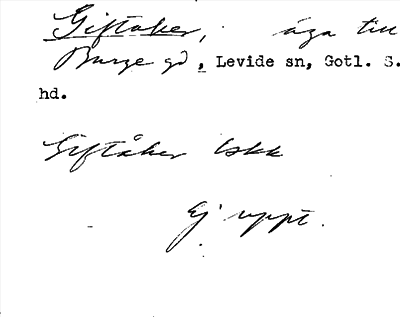 Giftaker, äga till
Burge gd, Levide sn, Gotl. S.
hd.
Giftåker Iskk
Ej uppt.